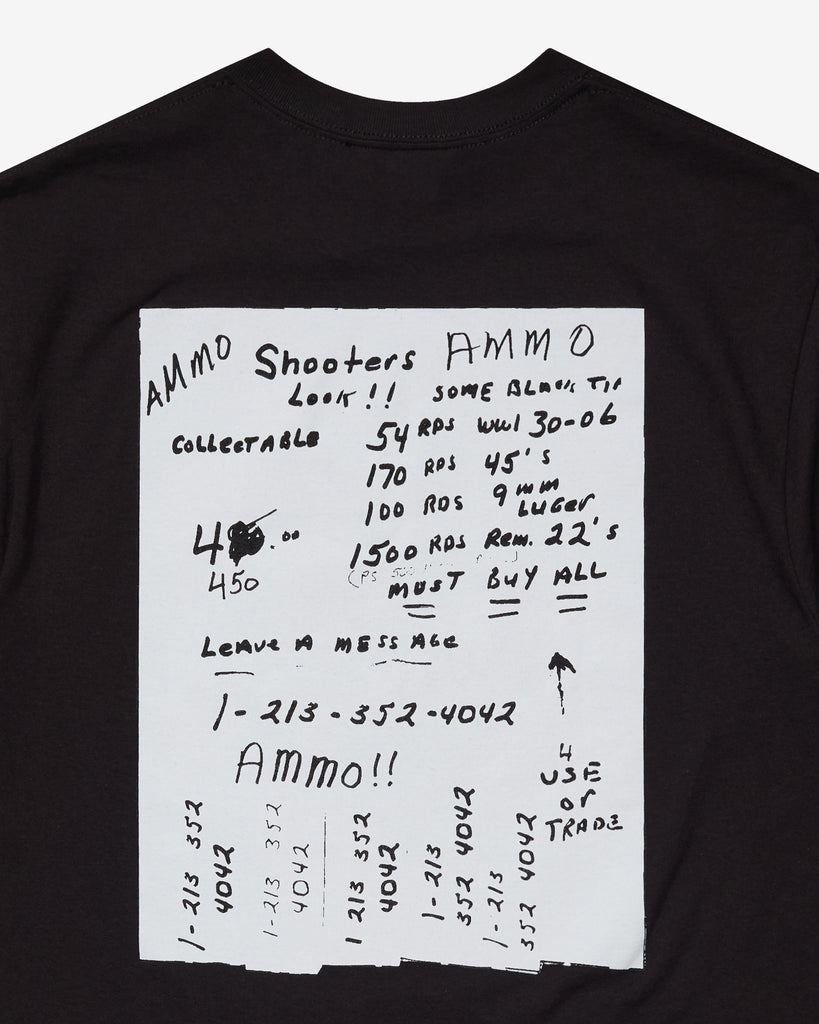 AMMO Shooters AMMO
Look!! SOME BLACK TIP
COLLECTABLE 54 RDS WW1 30-06
170 RDS 45's
100 RDS 9mm LUGER
1500 RDS Rem. 22's
450
MUST BUY ALL
LEAVE A MESSAGE
1-213-352-4042
AMMO!!
4
USE
or
TRADE
1-213 352 4042
1-213 352 4042
1 213 352 4042
1-213 352 4042
1-213 352 4042